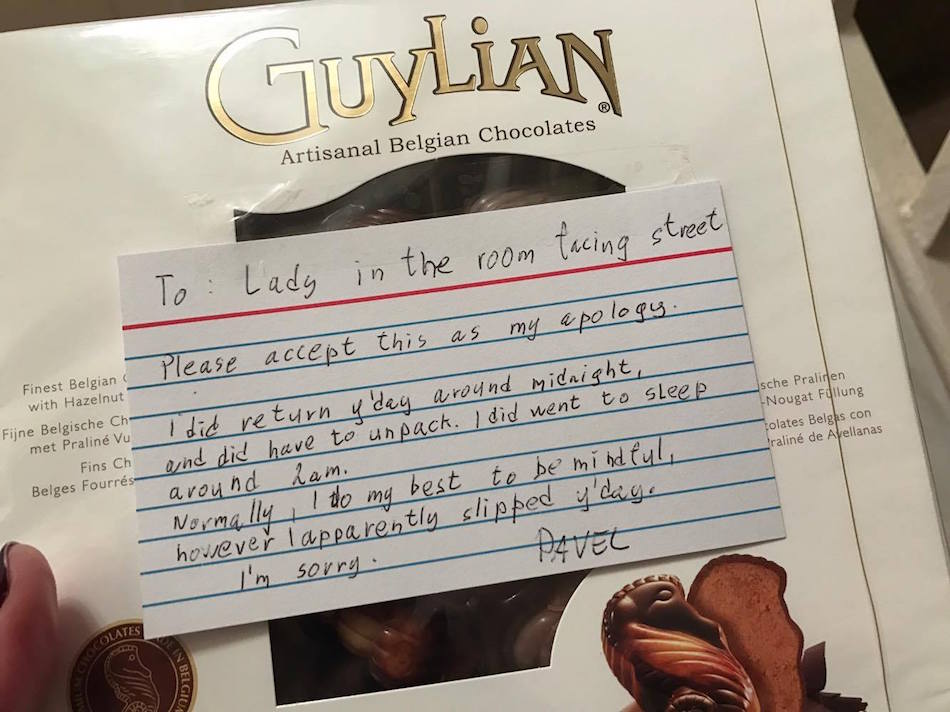 GUYLIAN®
Artisanal Belgian Chocolates
To : Lady in the room facing street
Please accept this as my apology.
I did return y'day around midnight,
and did have to unpack. I did went to sleep
around 2am.
Normally, I do my best to be mindful,
however I apparently slipped y'day.
I'm sorry.
PAVEL
Finest Belgian
with Hazelnut
Fijne Belgische Ch
met Praliné Vu
Fins Ch
Belges Fourrés
sche Pralinen
-Nougat Füllung
colates Belgas con
raliné de Avellanas
CHOCOLATES MADE IN BELGIUM